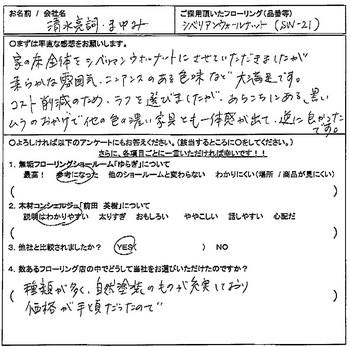 お名前 / 会社名
清水亮詞・まゆみ
ご採用頂いたフローリング(品番等)
シベリアンウォールナット (SW-21)
○まずは率直な感想をお願いします。
家の床全体をシベリアンウォルナットにさせていただきましたが
柔らかな雰囲気、ニュアンスのある色味など大満足です。
コスト削減のため、ラフを選びましたが、あちらこちらにある、黒い
ムラのおかげで他の色の濃い家具とも一体感が出て、逆に良かった
です。
○よろしければ以下のアンケートにもお答えください。(該当するところに○をしてください。)
さらに、各項目ごとに一言いただければ幸いです!!
1. 無垢フローリングショールーム「ゆらぎ」について
最高! 参考になった 他のショールームと変わらない わかりにくい(場所 / 商品が見にくい)
( )
2. 木材コンシェルジュ「前田 英樹」について
説明はわかりやすい 太りすぎ おもしろい ややこしい 話しやすい 心配だ
( )
3. 他社と比較されましたか? YES( ) NO
4. 数あるフローリング店の中でどうして当社をお選びいただけたのですか?
種類が多く、自然塗装のものが充実しており
価格が手と頃だったので